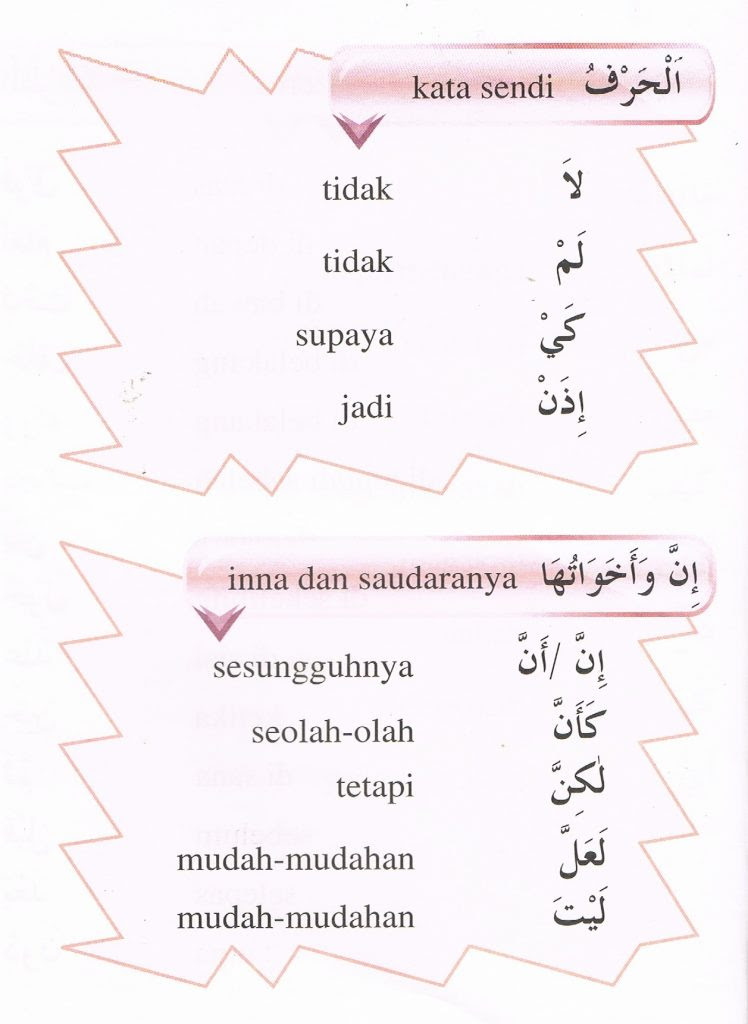 kata sendi اَلْحَرْفُ
tidak لاَ
tidak لَمْ
supaya كَيْ
jadi إِذَنْ
inna dan saudaranya إِنَّ وَأَخَوَاتُهَا
sesungguhnya إِنَّ / أَنَّ
seolah-olah كَأَنَّ
tetapi لٰكِنَّ
mudah-mudahan لَعَلَّ
mudah-mudahan لَيْتَ